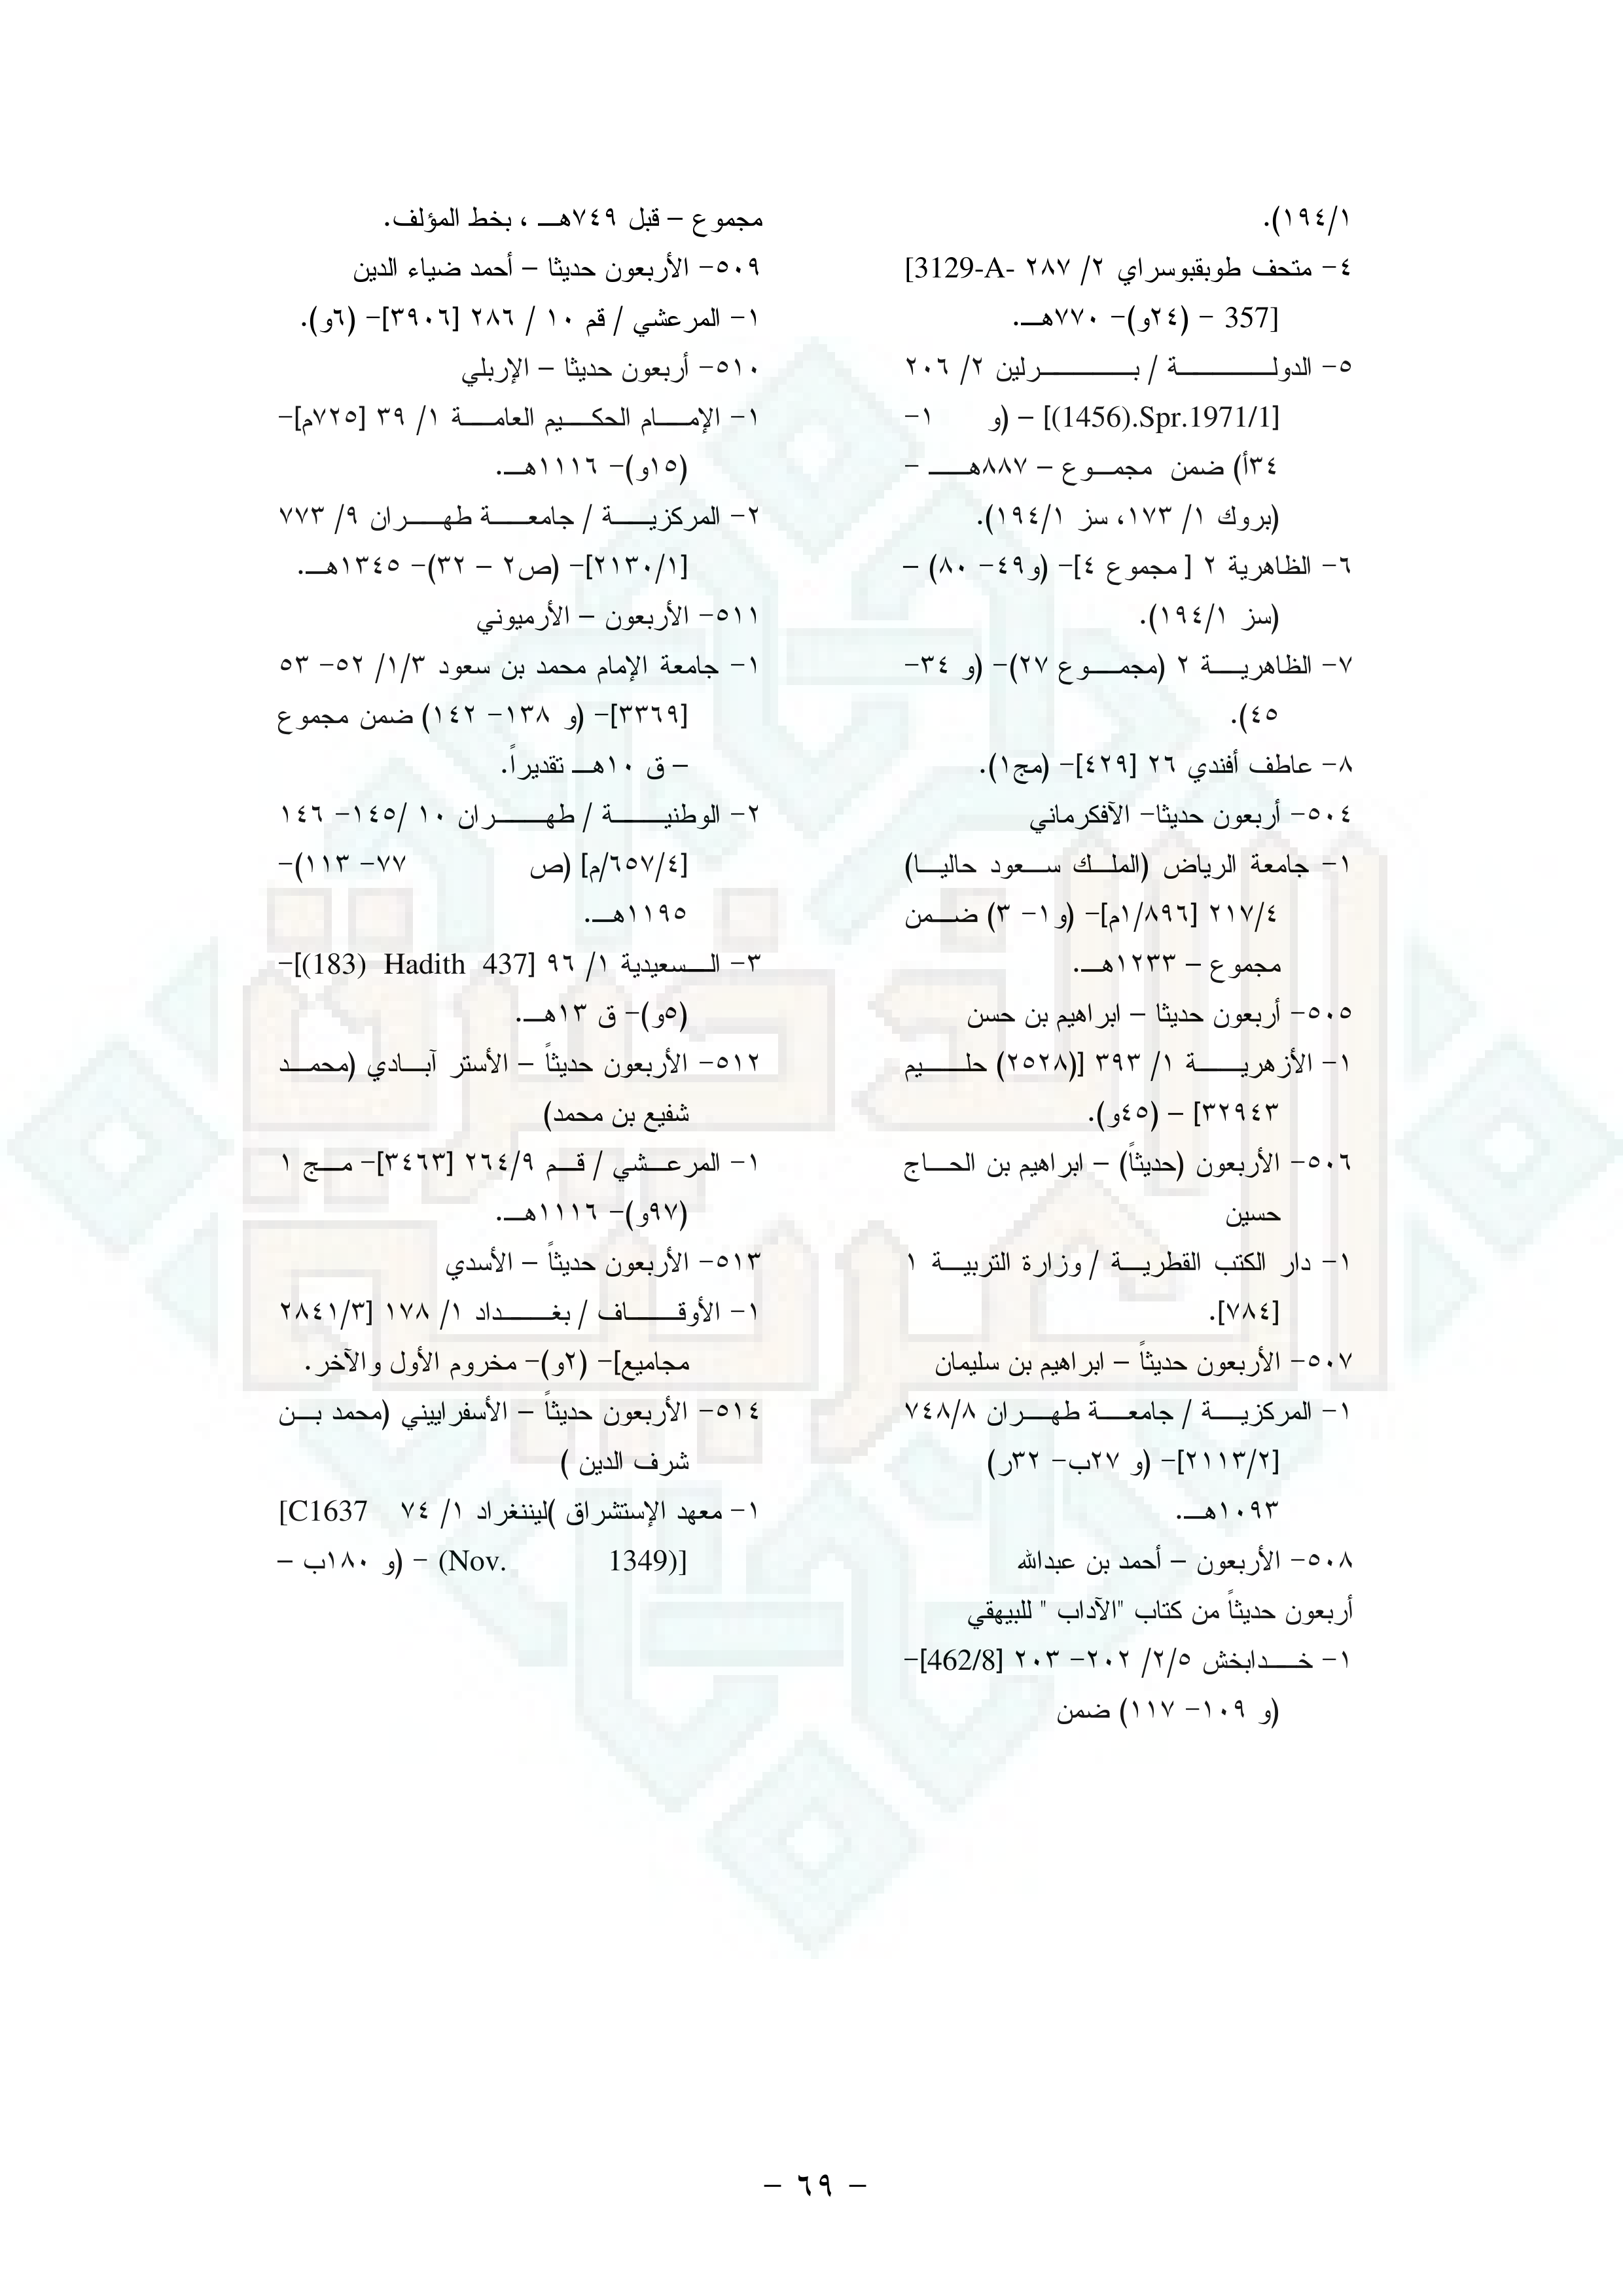 ١/١٩٤).
٤- متحف طوبقبوسراي ٢/ ٢٨٧ [3129-A-
357] - (٢٤و)- ٧٧٠هـ.
٥- الدولة / برلين ٢/ ٢٠٦
[1971/1.Spr.(1456)] – (و ١-
٣٤أ) ضمن مجموع – ٨٨٧هـ -
(بروك ١/ ١٧٣، سز ١/١٩٤).
٦- الظاهرية ٢ [ مجموع ٤]- (و٤٩- ٨٠) –
(سز ١/١٩٤).
٧- الظاهرية ٢ (مجموع ٢٧)- (و ٣٤-
٤٥).
٨- عاطف أفندي ٢٦ [٤٢٩]- (مج١).
٥٠٤- أربعون حديثا- الآفكرماني
١- جامعة الرياض (الملك سعود حاليا)
٢١٧/٤ [١/٨٩٦م]- (و١- ٣) ضمن
مجموع – ١٢٣٣هـ.
٥٠٥- أربعون حديثا – ابراهيم بن حسن
١- الأزهرية ١/ ٣٩٣ [(٢٥٢٨) حليم
٣٢٩٤٣] – (٤٥و).
٥٠٦- الأربعون (حديثاً) – ابراهيم بن الحاج
حسين
١- دار الكتب القطرية / وزارة التربية ١
[٧٨٤].
٥٠٧- الأربعون حديثاً – ابراهيم بن سليمان
١- المركزية / جامعة طهران ٧٤٨/٨
[٢١١٣/٢]- (و ٢٧ب- ٣٢ر)
١٠٩٣هـ.
٥٠٨- الأربعون – أحمد بن عبدالله
أربعون حديثاً من كتاب "الآداب " للبيهقي
١- خدابخش ٢/٥/ ٢٠٢- ٢٠٣ [462/8]-
(و ١٠٩- ١١٧) ضمن
مجموع – قبل ٧٤٩هـ ، بخط المؤلف.
٥٠٩- الأربعون حديثا – أحمد ضياء الدين
١- المرعشي / قم ١٠ / ٢٨٦ [٣٩٠٦]- (٦و).
٥١٠- أربعون حديثا – الإربلي
١- الإمام الحكيم العامة ١/ ٣٩ [٧٢٥م]-
(١٥و)- ١١١٦هـ.
٢- المركزية / جامعة طهران ٩/ ٧٧٣
[٢١٣٠/١]- (ص٢ – ٣٢)- ١٣٤٥هـ.
٥١١- الأربعون – الأرميوني
١- جامعة الإمام محمد بن سعود ١/٣/ ٥٢- ٥٣
[٣٣٦٩]- (و ١٣٨- ١٤٢) ضمن مجموع
– ق ١٠هـ تقديراً.
٢- الوطنية / طهران ١٠ /١٤٥- ١٤٦
[٦٥٧/٤/م] (ص ٧٧- ١١٣)-
١١٩٥هـ.
٣- السعيدية ١/ ٩٦ [437 Hadith (183)]-
(٥و)- ق ١٣هـ.
٥١٢- الأربعون حديثاً – الأستر آبادي (محمد
شفيع بن محمد)
١- المرعشي / قم ٢٦٤/٩ [٣٤٦٣]- مج ١
(٩٧و)- ١١١٦هـ.
٥١٣- الأربعون حديثاً – الأسدي
١- الأوقاف / بغداد ١/ ١٧٨ [٢٨٤١/٣
مجاميع]- (٢و)- مخروم الأول والآخر.
٥١٤- الأربعون حديثاً – الأسفراييني (محمد بن
شرف الدين )
١- معهد الإستشراق )ليننغراد ١/ ٧٤ [C1637
(Nov. 1349)] - (و ١٨٠ب –
- ٦٩ -